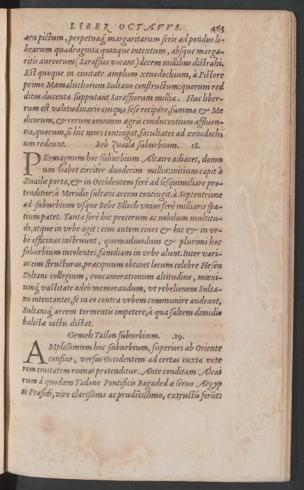 LIBER OCTAVVS. 463
acu pictum, perpetuaq́; margaritarum serie ad pondus li-
brarum quadraginta quinque intextum, absque marga-
ritis aureorum (Saraffios vocant) decem millibus distrahi.
Est quoque in ciuitate amplum xenodochium, à Pistore
primo Mamaluchorum Sultano constructum: quorum red
ditus ducenta supputant Saraffiorum millia. Huc liber-
rum est valetudinario cuique sese recipere, summa & Me
dicorum, & rerum omnium ægris conducentium affluen-
tia, quorum, si hic mori contingat, facultates ad xenodochi
um redeunt.
Beb Zuaila suburbium. 18.
PErmagnum hoc suburbium Alcairo adiacet, domo
rum habet circiter duodecim millia: initium capit à
Zuaila porta, & in Occidentem ferè ad sesquimiliare pro-
tenditur: à Meridie sultani arcem contingit. à Septentrione
ad suburbium vsque Bebe Elloch vnius ferè milliaris spa-
tium patet. Tanta ferè hic procerum ac nobilium multitu-
do, atque in vrbe agit: cùm autem ciues & hic & in vr-
be officinas instruunt, quemadmodum & plurimi hoc
suburbium incolentes, familiam in vrbe alunt. Inter vari-
as eius structuras, præcipuum obtinet locum celebre Hesen
Sultani collegium, concamerationum altitudine, mœni-
umq́; vastitate adeò memorandum, vt rebellionem Sulta-
no intentantes, se in eo contra vrbem communire audeant,
Sultaniq́; arcem tormentis impetere, à qua saltem dimidio
balistæ iactu distat.
Gemeh Tailon suburbium. 19.
AMplissimum hoc suburbium, superiori ab Oriente
confine, versùs Occidentem ad certas iuxta vete
rem ciuitatem ruinas protenditur. Ante conditam Alcai
rum à quodam Tailone Pontificis Bagaded æ seruo Ægyp
ti Præside, viro clarissimo ac prudentissimo, extructū ferūt: